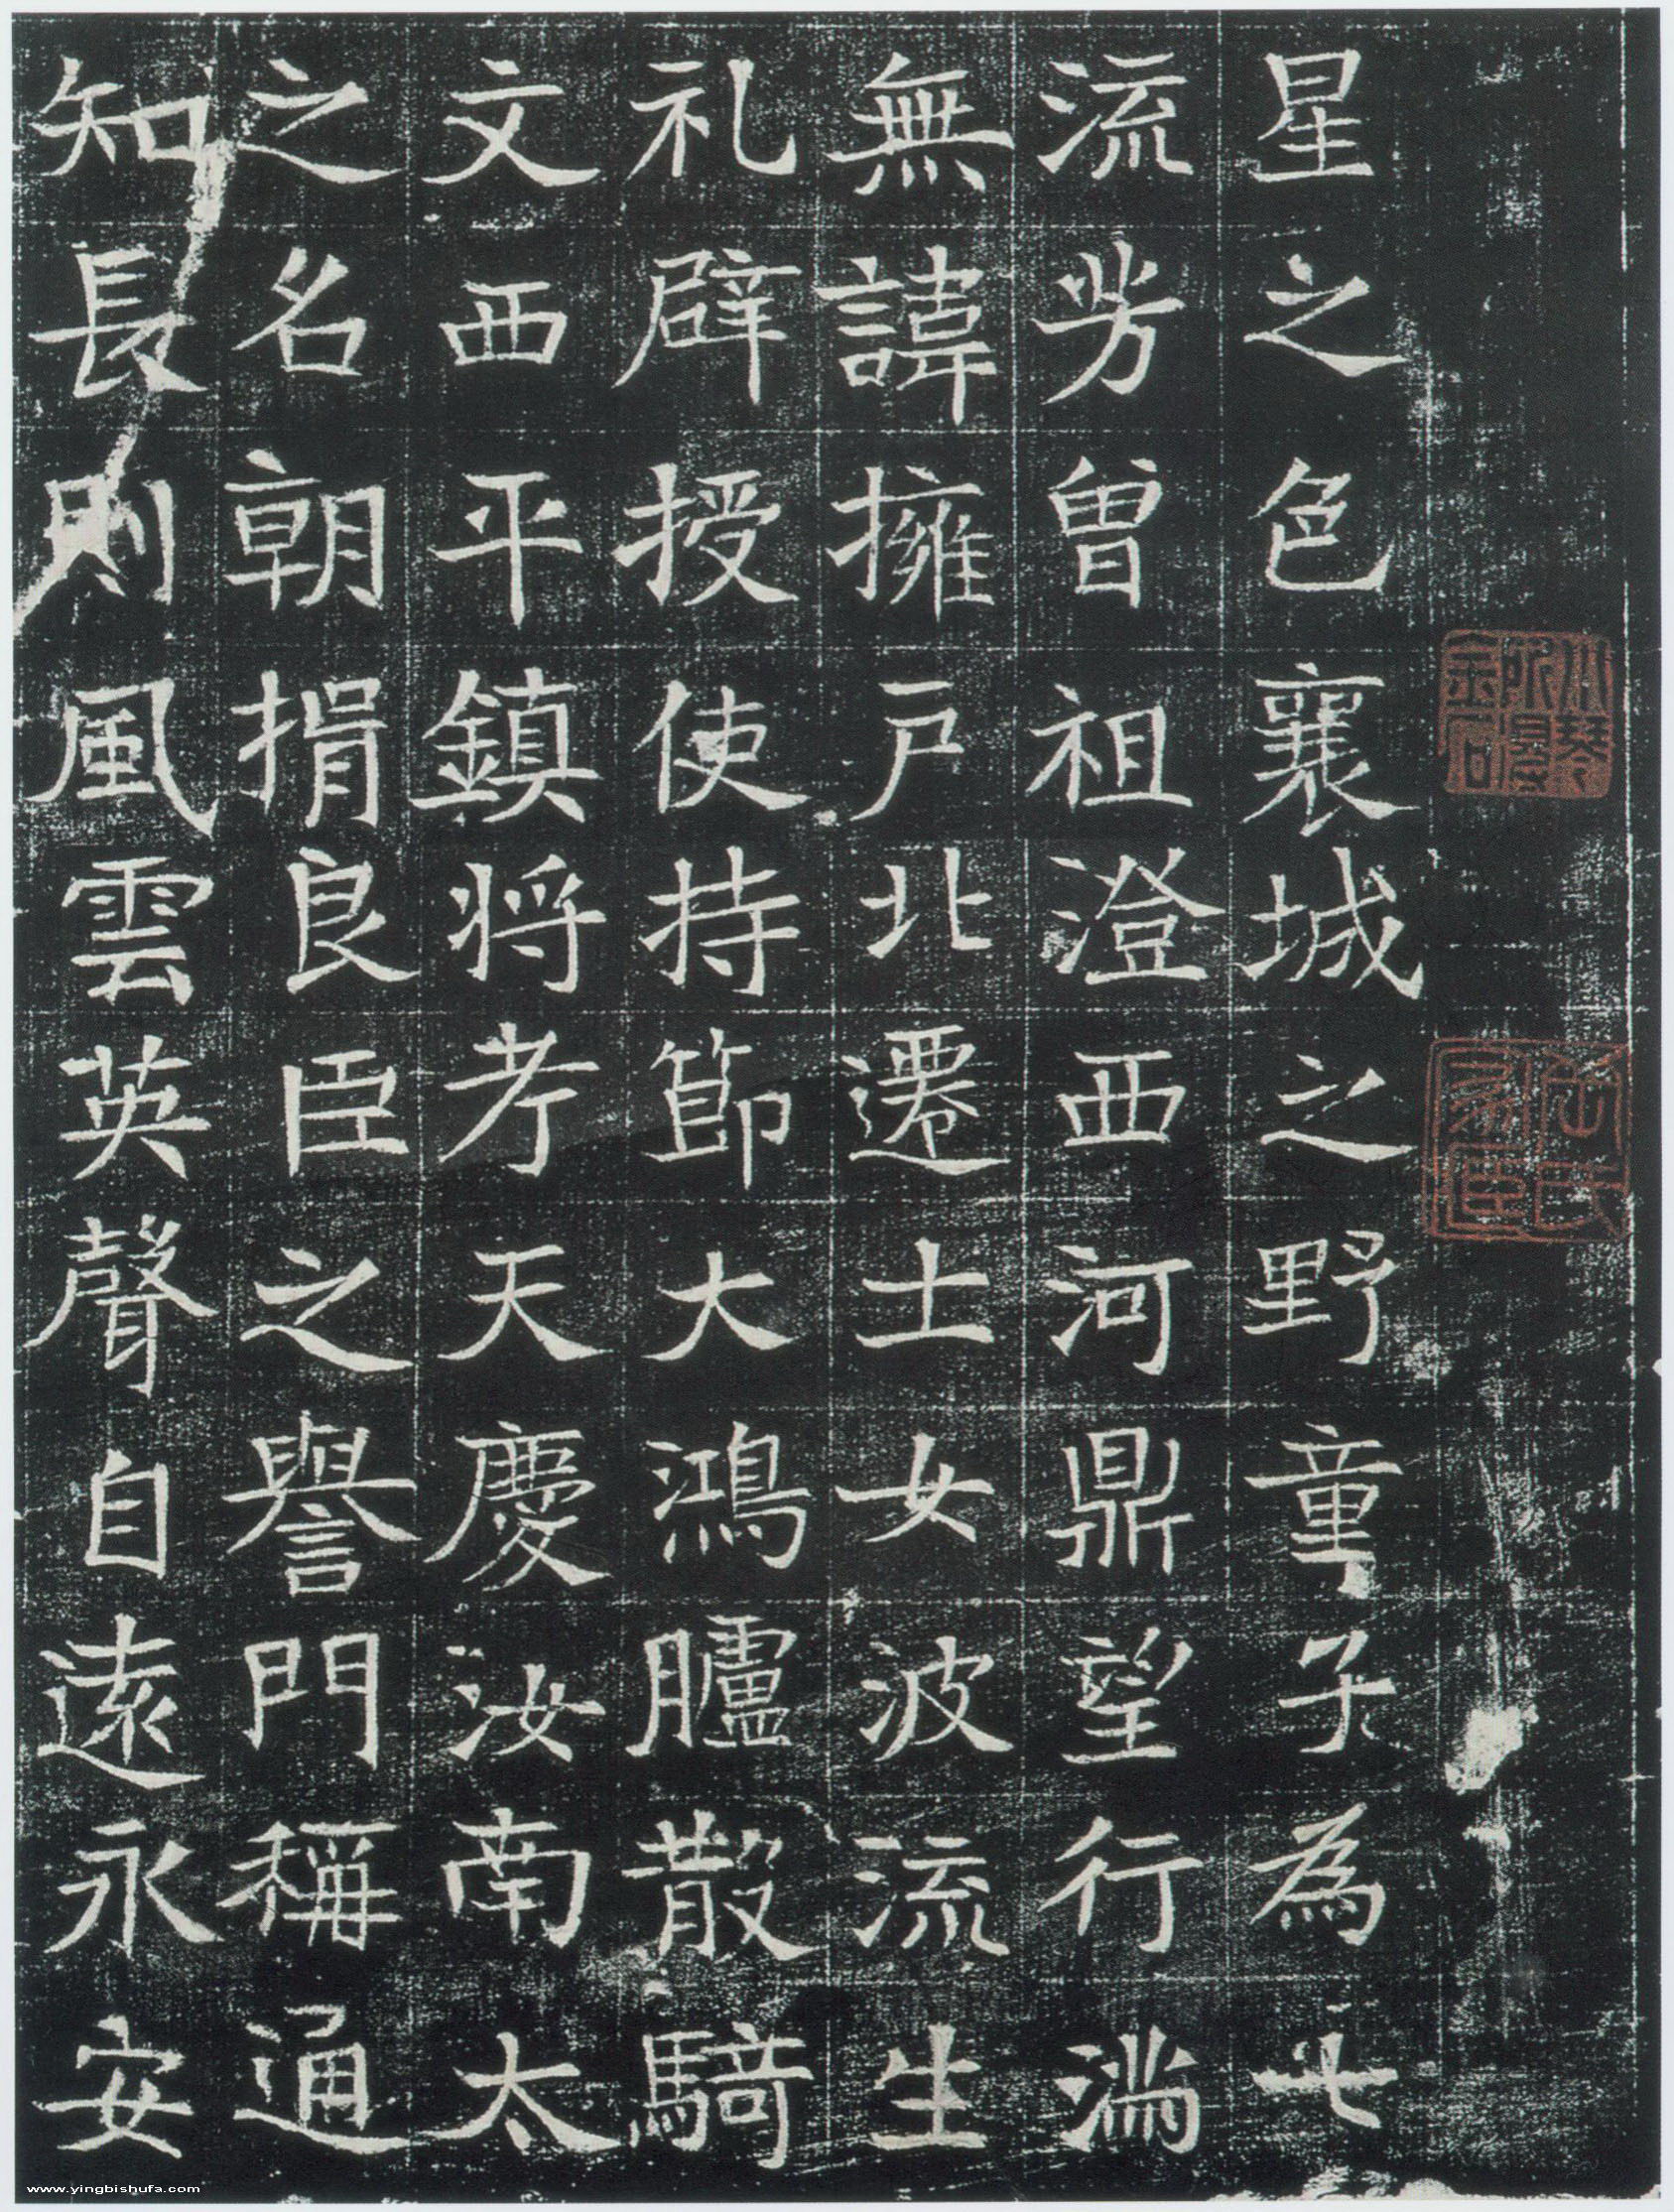 星之色襄城之野童子為
流芳曾祖澄西河鼎望行
無諱擁戶北遷士女波流生
礼辟授使持節大鴻臚散騎
文西平鎮將考天慶汝南太
之名朝捐良臣之譽門稱通
知長則風雲英聲自遠永安
小琴所得金石
www.yingbishufa.com